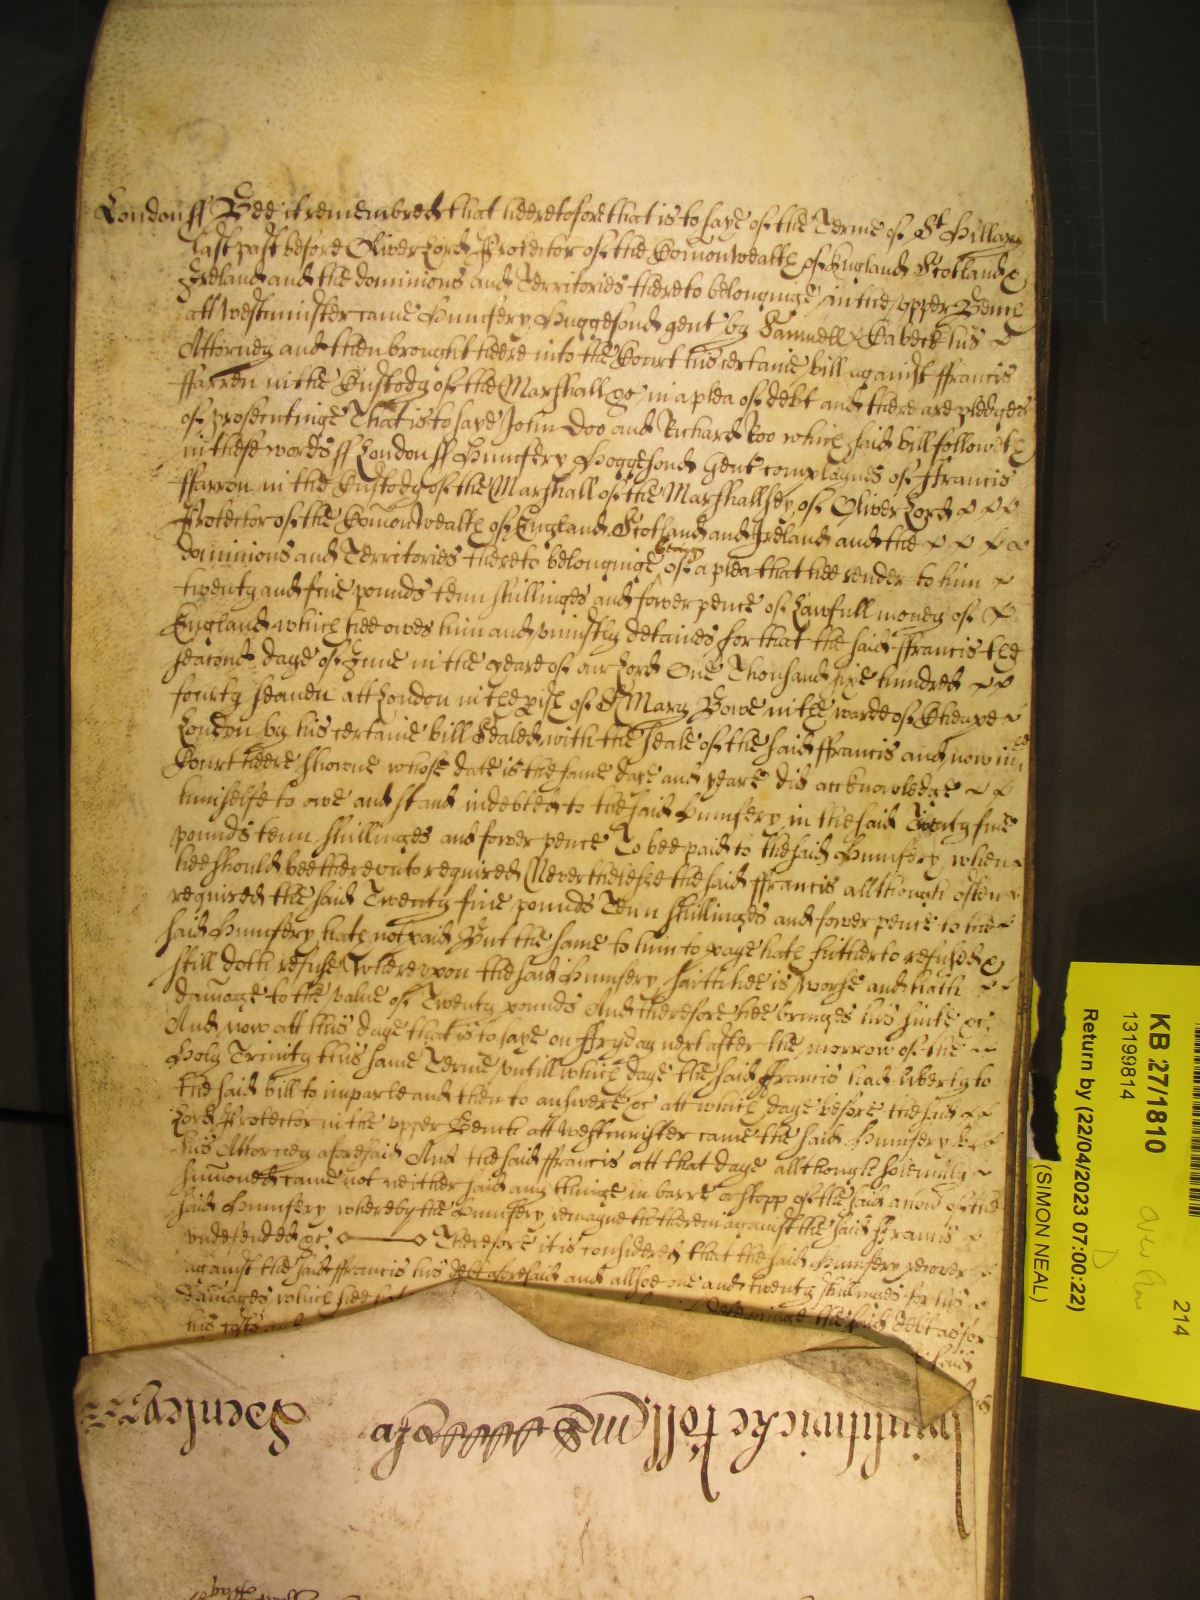 London ss Bee it remembred that heeretofore that is to saye of the Terme of St Hillary
last past before Oliver Lord Protector of the Comonwealth of England Scotland &
Ireland and the dominions and Territories thereto belonginge in the upper Bench
att Westminster came Humfery Huggesond gent by Samuell his
Attorney and then brought heere into the Court his certaine bill against ffrancis
ffarren in the Custody of the Marshall &c in a plea of debt and there are pledges
of prosecutinge That is to saye John Doo and Richard Roo which said bill followeth
in these words ss London ss Humfery Hoggesond Gent complaynes of ffrancis
ffarron in the Custody of the Marshall of the Marshallsey of Oliver Lord
Protector of the Comonwealth of England Scotland and Ireland and the
dominions and Territories thereto belonginge beinge of a plea that hee render to him
twenty and five pounds tenn shillinges and fower pence of Lawfull money of
England which hee owes him and uniustly detaines for that the said ffrancis the
seacond daye of June in the yeare of our Lord One Thousand sixe hundred
fourty seaven att London in the pish of St Mary Bowe in the warde of Cheape
London by his certaine bill Sealed with the seale of the said ffrancis and now in
Court heere showne whose date is the same daye and yeare did acknowledge
himselfe to owe and stand indebted to the said Humfery in the said Twenty five
pounds tenn shillinges and fower pence To bee paid to the said Humfery when
hee should bee thereunto required Neverthelesse the said ffrancis allthough often
required the said Twenty five pounds Tenn shillinges and fower pence to the
said Humfery hath not paid But the same to him to paye hath hitherto refused &
still doth refuse Whereupon the said Humfery saith hee is worse and hath
damage to the value of Twenty pounds And therefore hee bringes his suite &c
And now att this daye that is to saye on ffryday next after the morrow of the
Holy Trinity this same Terme untill which daye the said ffrancis had liberty to
the said bill to imparle and then to answere &c att which daye before the said
Lord Protector in the upper Bench att Westminster came the said Humfery by
his Attorney aforesaid And the said ffrancis att that daye allthough solemnly
summoned came not neither said any thinge in barre or stopp of the said accon of the
said Humfery whereby the Humfery remayneth therein against the said ffrancis
undefended &c Therefore it is considered that the said Humfery recover
against the said ffrancis his debt aforesaid and allsoe one and twenty shillinges for his
damages which hee the said debt
his costs and
said
Henley
KB 27/1810
13199814
Return by (22/04/2023 07:00:22)
(SIMON NEAL)
214
D